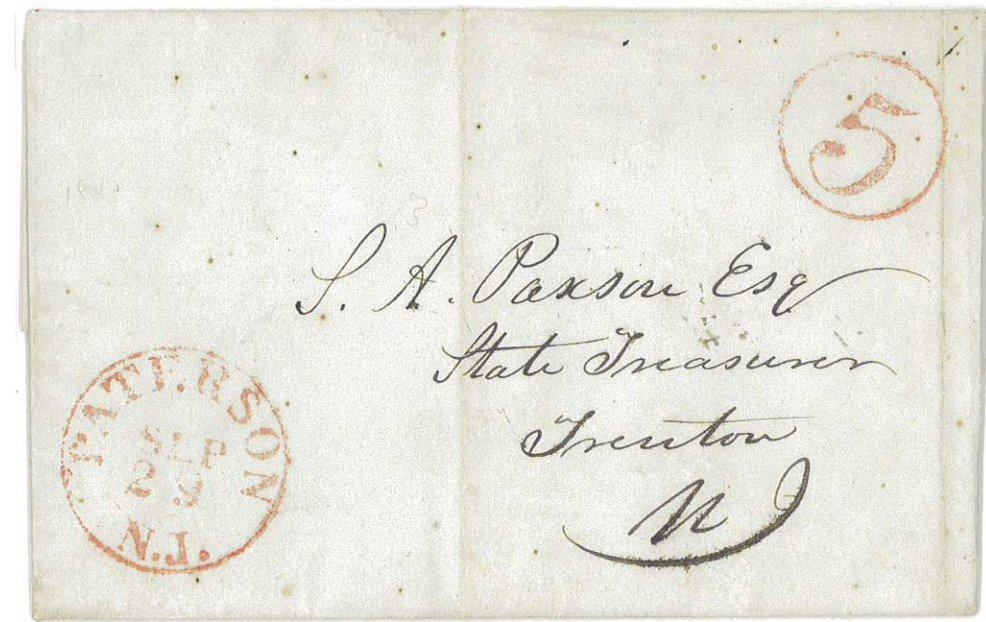 5
S. A. Paxson Esq
State Treasurer
Trenton
NJ
PATERSON
SEP
N.J.